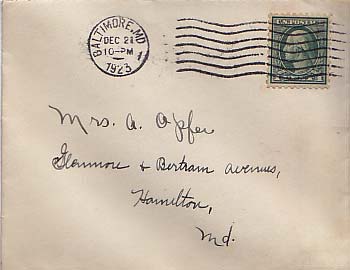 BALTIMORE, MD
DEC 21
10-PM
1923
1
U.S. POSTAGE
Mrs. A. Apfer
Glenmore & Bertram avenues,
Hamilton,
Md.